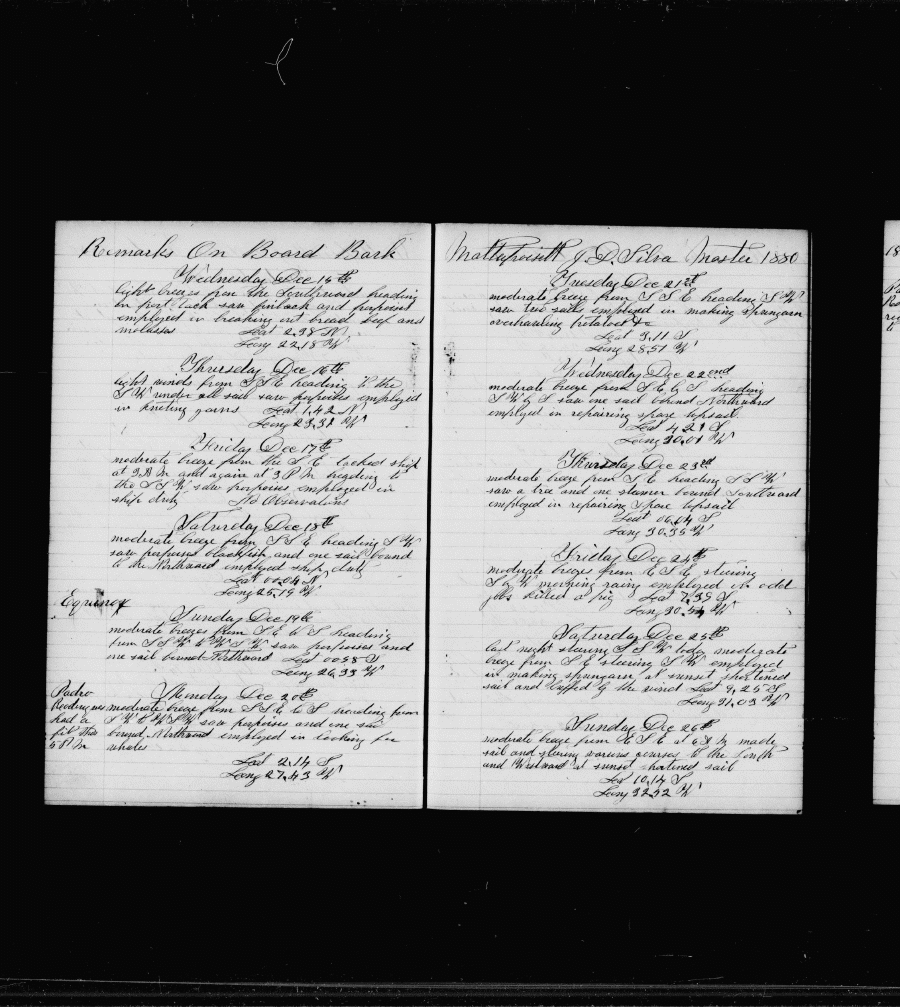 Remarks On Board Bark
Wednesday Dec 15th
light breezes from the Southward heading
on port tack saw finback and porpoises
employed in breaking out bread beef and
molasses Lat 2.38 N
Long 22.18 W
Thursday Dec 16th
light winds from S S E heading to the
S W under all sail saw porpoises employed
in knoting yarns Lat 1.42 N
Long 23.32 W
Friday Dec 17th
moderate breeze from the S E tacked ship
at 9 A M and again at 3 P M heading to
the S S W saw porpoises employed in
ship duty No Observations
Saturday Dec 18th
moderate breeze from S S E heading S W
saw porpoises blackfish and one sail bound
to the Northward employed ship duty
Lat 00.04 N
Long 25.19 W
Equinox
Sunday Dec 19th
moderate breezes from S E b S heading
from S S W to W S W saw porpoises and
one sail bound Northward Lat 00.58 S
Long 26.33 W
Padro
had a
fit this
5 P M
Monday Dec 20th
moderate breeze from S S E & S heading from
S W to W S W saw porpoises and one sail
bound Northward employed in looking for
whales
Lat 2.14 S
Long 27.43 W
Mattapoisett J. D Silva Master 1880
Tuesday Dec 21st
moderate breeze from S S E heading S W
saw two sails employed in making spunyarn
overhauling potatoes &c
Lat 3.11 S
Long 28.57 W
Wednesday Dec 22nd
moderate breeze from S E b S heading
S W b S saw one sail bound Northward
employed in repairing spare topsail
Lat 4.21 S
Long 30.01 W
Thursday Dec 23rd
moderate breeze from S E heading S S W
saw a tree and one steamer bound Southward
employed in repairing spare topsail
Lat 06.04 S
Long 30.35 W
Friday Dec 24th
moderate breeze from E S E steering
S b W morning rainy employed in odd
jobs killed a pig Lat 7.39 S
Long 30.54 W
Saturday Dec 25th
last night steering S S W today moderate
breeze from S E steering S W employed
in making spunyarn at sunset shortened
sail and luffed to the wind Lat 9.25 S
Long 31.03 W
Sunday Dec 26th
moderate breeze from E S E at 6 A M made
sail and steering various courses to the South
and Westward at sunset shortened sail
Lat 10.14 S
Long 32.52 W
18